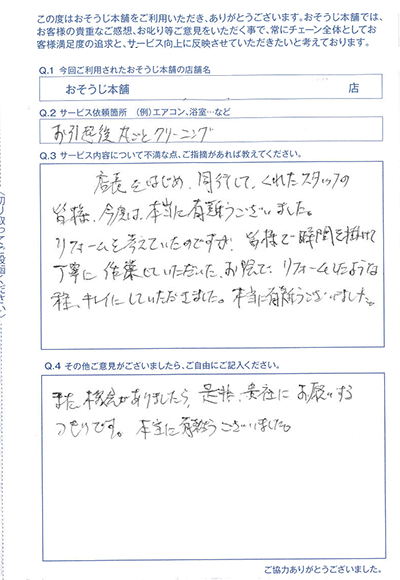 この度はおそうじ本舗をご利用いただき、ありがとうございます。おそうじ本舗では、
お客様の貴重なご感想、お叱り等ご意見をいただく事で、常にチェーン全体としてお
客様満足度の追求と、サービス向上に反映させていただきたいと考えております。
Q.1 今回ご利用されたおそうじ本舗の店舗名
おそうじ本舗 店
Q.2 サービス依頼箇所 (例)エアコン、浴室…など
お引越後丸ごとクリーニング
Q.3 サービス内容について不満な点、ご指摘があれば教えてください。
店長をはじめ、同行して、くれたスタッフの
皆様、今度は本当に有難うございました。
リフォームを考えていたのですが、皆様で時間を掛けて
丁寧に作業していただいた、お陰で、リフォームしたような
程、キレイにしていただきました。本当に有難うございました。
Q.4 その他ご意見がございましたら、ご自由にご記入ください。
また、機会がありましたら、是非、貴社にお願いする
つもりです。本当に有難うございました。
ご協力ありがとうございました。